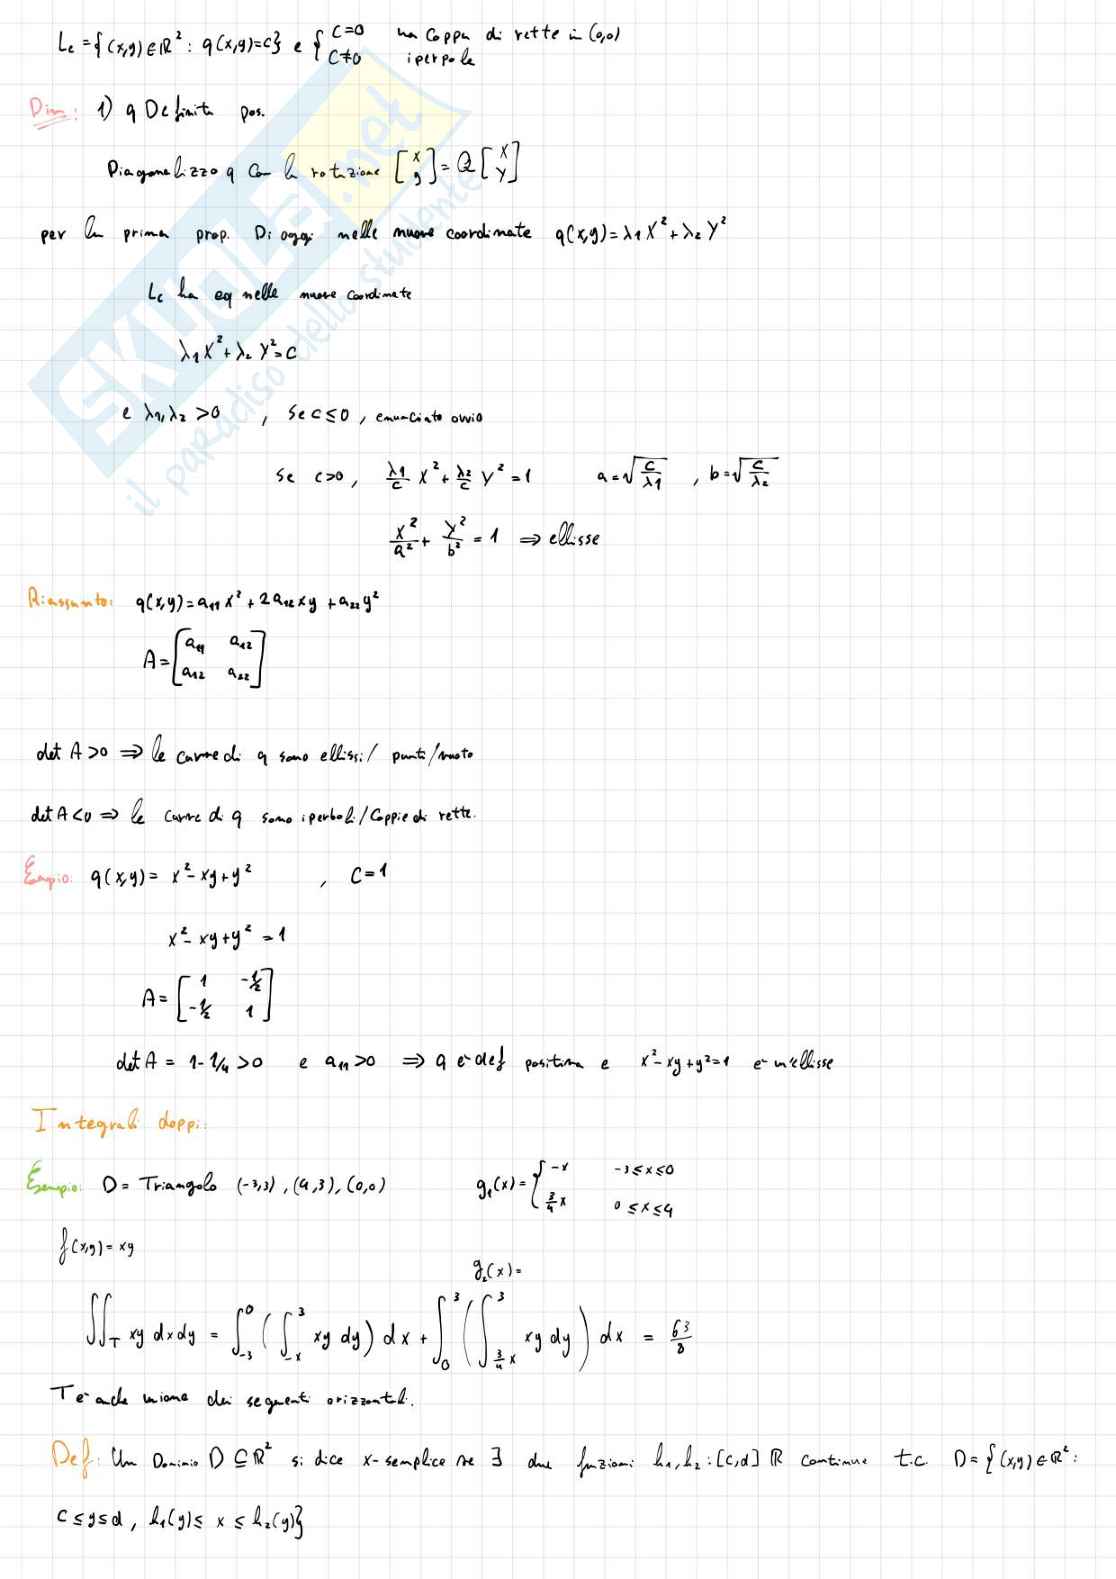 Lc = {(x,y) ∈ ℝ² : q(x,y)=c} e { C=0 una coppia di rette in (0,0)
C≠0 iperbole
Dim: 1) q Definita pos.
Diagonalizzo q con la rotazione [x y] = Q [X Y]
per la prima prop. Di oggi nelle nuove coordinate q(x,y) = λ1 X² + λ2 Y²
Lc ha eq nelle nuove coordinate
λ1 X² + λ2 Y² = c
e λ1, λ2 > 0 , se c ≤ 0 , enunciato ovvio
Se c>0, λ1/c X² + λ2/c Y² = 1 a = √(c/λ1) , b = √(c/λ2)
X²/a² + Y²/b² = 1 ⇒ ellisse
Riassunto: q(x,y) = a11 x² + 2a12 xy + a22 y²
A = [a11 a12
a12 a22]
det A > 0 ⇒ le curve di q sono ellissi / punti / vuoto
det A < 0 ⇒ le curve di q sono iperboli / Coppie di rette.
q(x,y) = x² - xy + y² , C = 1
x² - xy + y² = 1
A = [1 -1/2
-1/2 1]
det A = 1 - 1/4 > 0 e a11 > 0 ⇒ q è def positiva e x² - xy + y² = 1 è un'ellisse
Integrali doppi:
Esempio: D = Triangolo (-3,3), (4,3), (0,0) g1(x) = { -x -3 ≤ x ≤ 0
3/4 x 0 ≤ x ≤ 4
f(x,y) = xy
g2(x) =
∬_T xy dxdy = ∫_{-3}^{0} (∫_{-x}^{3} xy dy) dx + ∫_{0}^{3} (∫_{3/4 x}^{3} xy dy) dx = 63/8
T è anche unione dei segmenti orizzontali.
Def: Un Dominio D ⊆ ℝ² si dice x-semplice se ∃ due funzioni h1, h2 : [c,d] ℝ continue t.c. D = {(x,y) ∈ ℝ² :
c ≤ y ≤ d , h1(y) ≤ x ≤ h2(y)}
SKUOLA.net
il paradiso dello studente